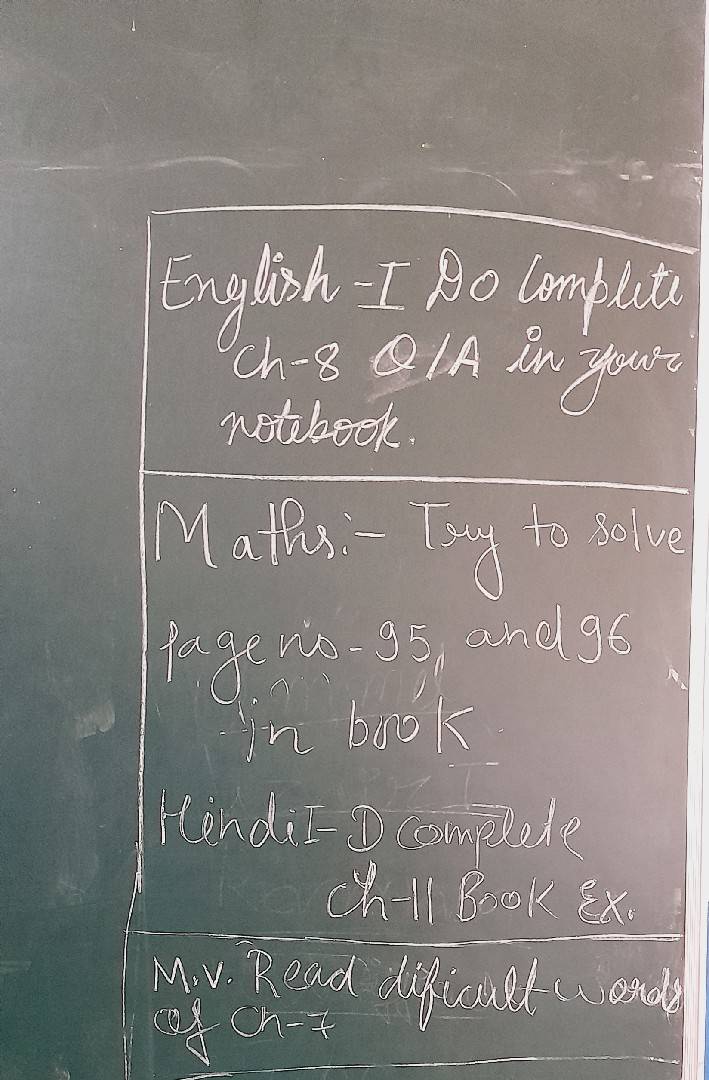 English - I Do Complete
Ch-8 Q/A in your
notebook.
Maths:- Try to solve
page no - 95, and 96
in book
Hindi I - D complete
Ch-11 Book Ex.
M.V. Read dificult words
of Ch-7